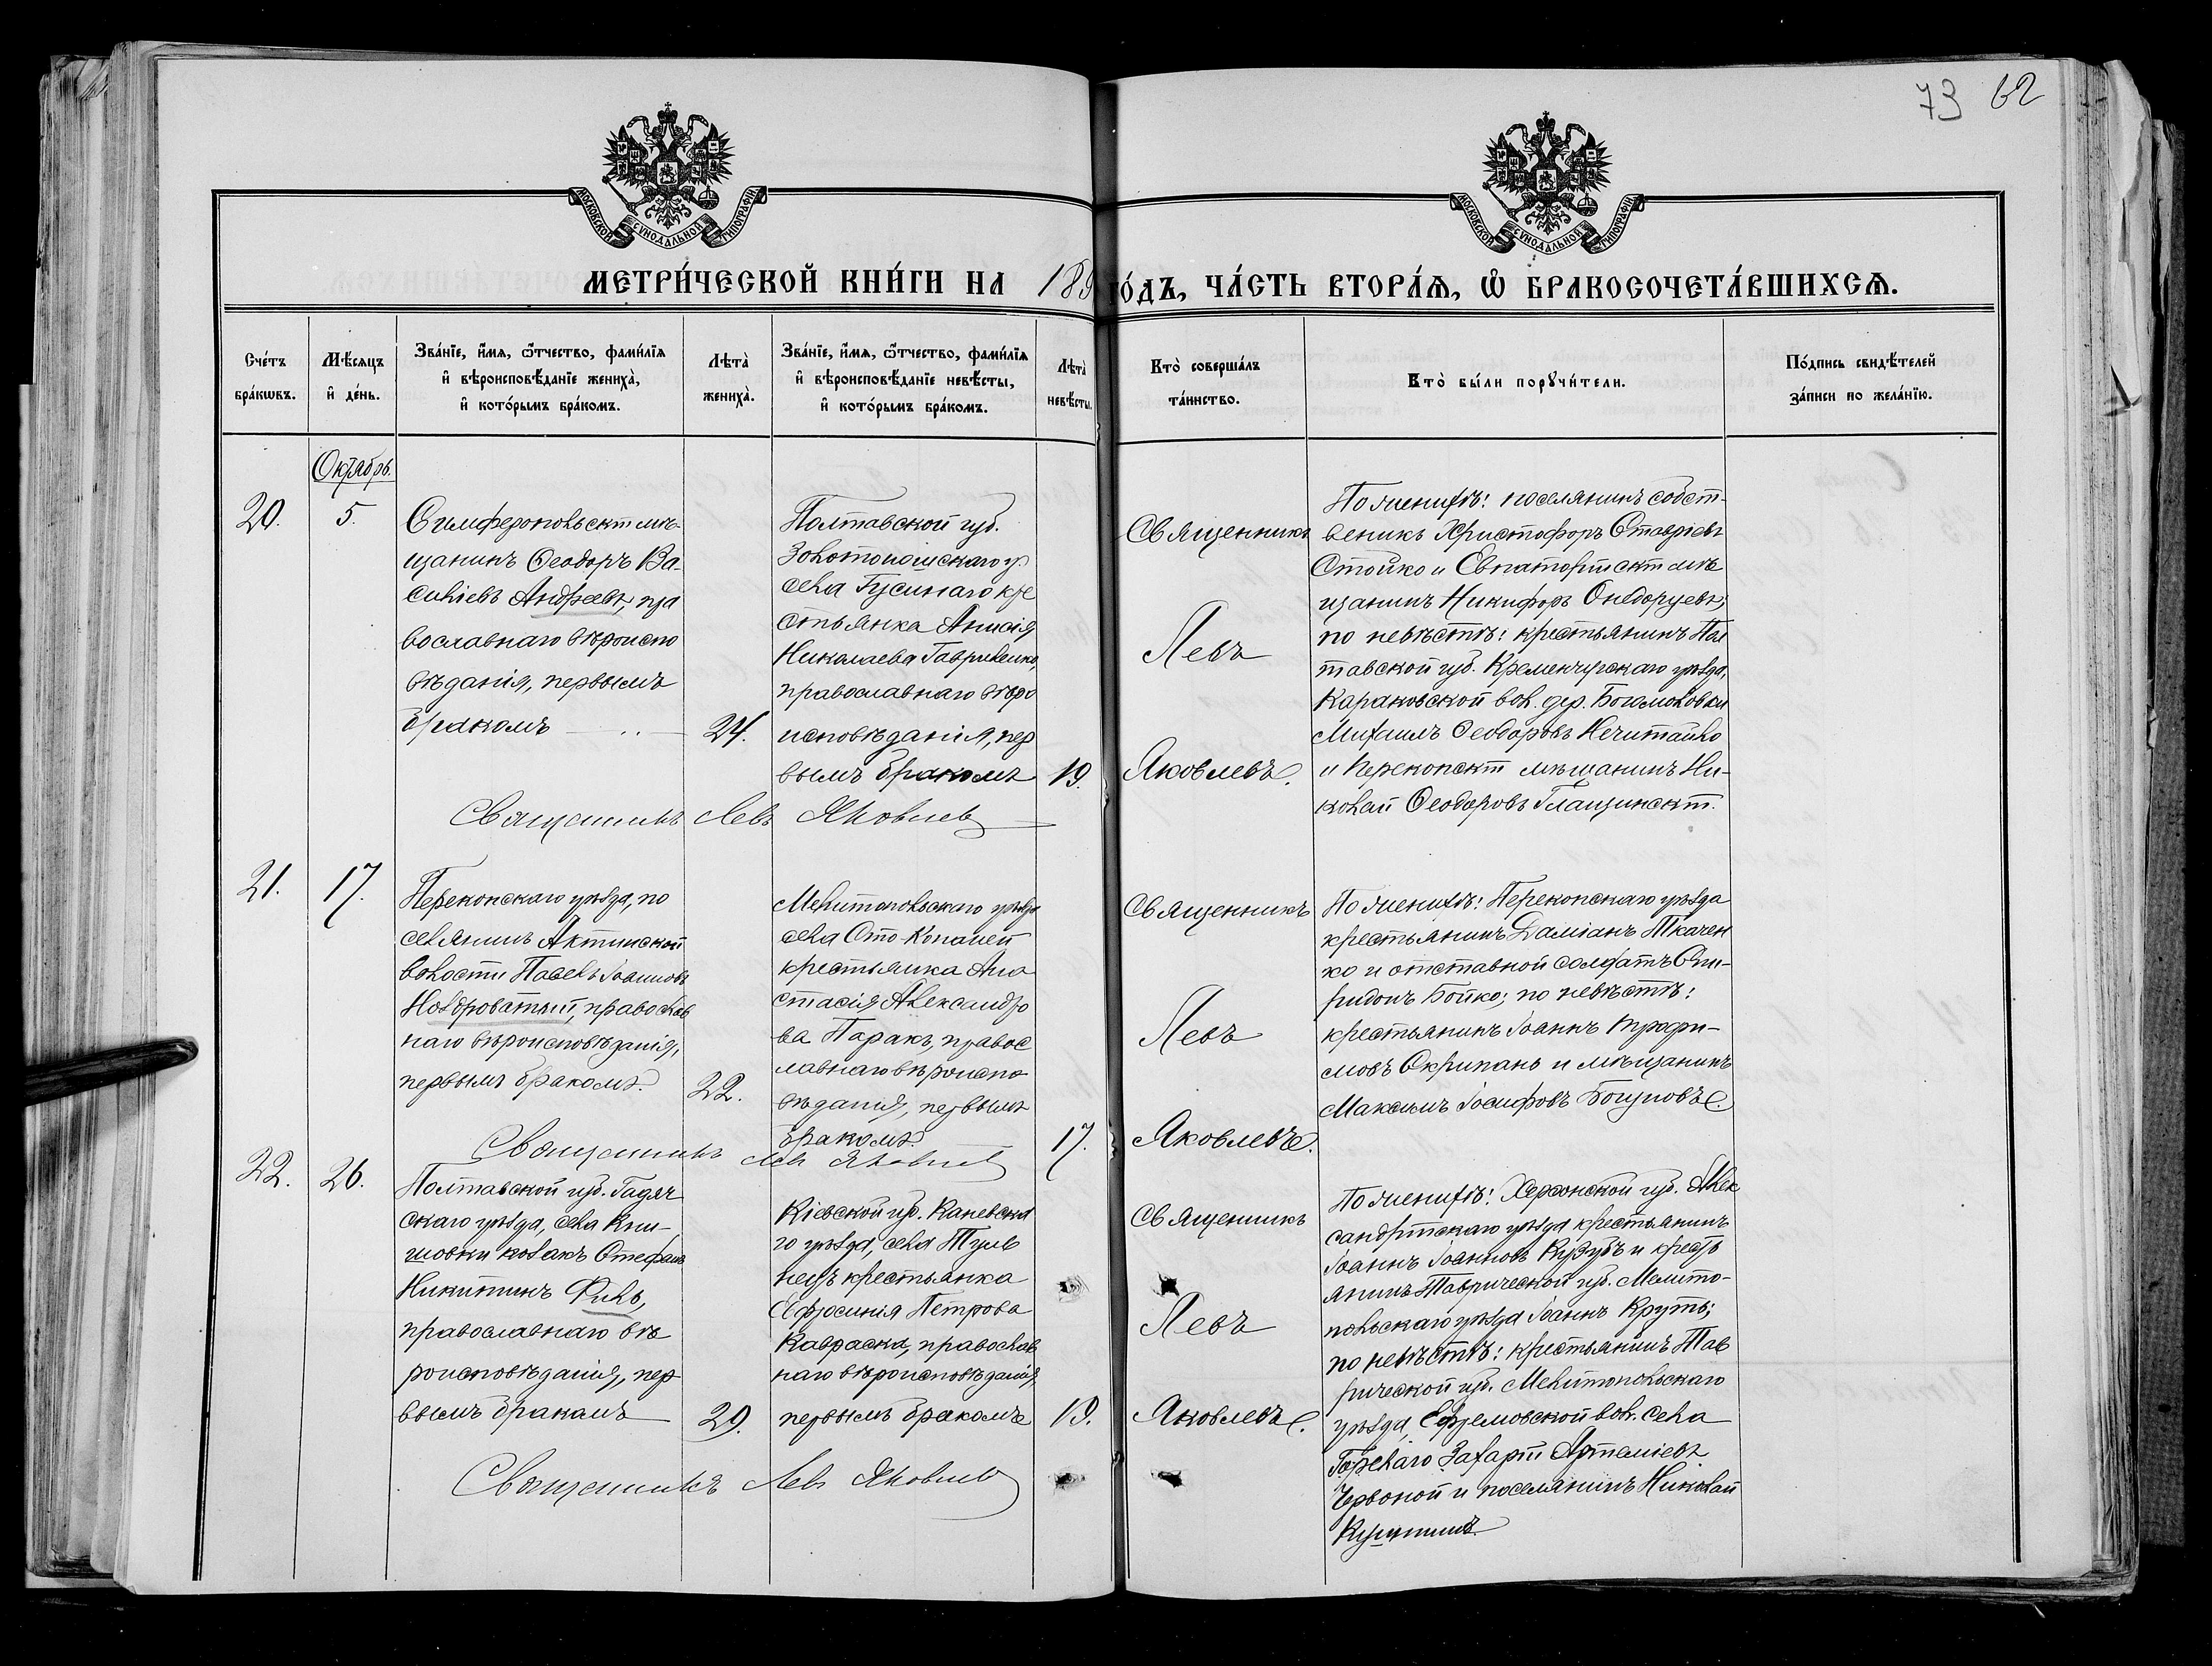 73 62
МОСКОВСКОЙ СѴНОДАЛЬНОЙ ТИПОГРАФІИ
МОСКОВСКОЙ СѴНОДАЛЬНОЙ ТИПОГРАФІИ
МЕТРИ́ЧЕСКОЙ КНИ́ГИ НА 189
ГО́ДЪ, ЧА́СТЬ ВТОРА́Ѧ, Ѽ БРАКОСОЧЕТА́ВШИХСѦ.
Сче́тъ
бра́кѡвъ.
Мѣ́сяцъ
и҆ де́нь.
Зва́нїе, и҆́мя, ѻ҆́тчество, фами́лїя
и҆ вѣроисповѣ́данїе жениха̀,
и҆ кото́рымъ бра́комъ.
Лѣта̀
жениха̀.
Зва́нїе, и҆́мя, ѻ҆́тчество, фами́лїя
и҆ вѣроисповѣ́данїе невѣ́сты,
и҆ кото́рымъ бра́комъ.
Лѣта̀
невѣ́сты.
Кто̀ соверша́лъ
та́инство.
Кто̀ бы́ли порꙋчи́тели.
По́дпись свидѣ́телей
за́писи по жела́нїю.
Октябрь.
20.
5.
Симферопольскій мѣ-
щанинъ Ѳеодоръ Ва-
силіевъ Андреевъ, пра
вославнаго вѣроиспо
вѣданія, первымъ
бракомъ
24.
Полтавской губ.
Золотоношскаго у.
села Гусинаго кре
стьянка Анисія
Николаева Гавриленко,
православнаго вѣро
исповѣданія, пер
вымъ бракомъ
19.
Священникъ
Левъ
Яковлевъ.
По женихѣ: поселянинъ собст-
веникъ Христофоръ Ставріевъ
Стойко и Евпаторійскій мѣ
щанинъ Никифоръ
по невѣстѣ: крестьянинъ Пол
тавской губ. Кременчугскаго уѣзда,
вол. дер. Богомоловки
Михаилъ Ѳеодоровъ Нечитайло
и Перекопскій мѣщанинъ Ни-
колай Ѳеодоровъ Глащинскій.
Священникъ Левъ Яковлевъ
21.
17.
Перекопскаго уѣзда, по
селянинъ Актинской
волости Павелъ Іоанновъ
Ноздроватый, православ
наго вѣроисповѣданія,
первымъ бракомъ.
22.
Мелитопольскаго уѣзда
села Сто-Копаней
крестьянка Ана
стасія Александро
ва Таракъ, правос
лавнаго вѣроиспо
вѣданія, первымъ
бракомъ.
17.
Священникъ
Левъ
Яковлевъ.
По женихѣ: Перекопскаго уѣзда
крестьянинъ Даміанъ Ткачен
ко и отставной солдатъ Спи-
ридонъ Бойко; по невѣстѣ:
крестьянинъ Іоаннъ Трофи-
мовъ Скрипань и мѣщанинъ
Максимъ Іосифовъ Богуповъ.
Священникъ Левъ Яковлевъ
22.
26.
Полтавской губ. Гадяч
скаго уѣзда, села Кни-
шовки козакъ Стефанъ
Никитинъ Филь,
православнаго вѣ
роисповѣданія, пер
вымъ бракомъ
29.
Кіевской губ. Каневска
го уѣзда, села Тули
нецъ крестьянка
Ефросинія Петрова
Кавраска, православ
наго вѣроисповѣданія,
первымъ бракомъ
19.
Священникъ
Левъ
Яковлевъ.
По женихѣ: Херсонской губ. Алек
сандрійскаго уѣзда крестьянинъ
Іоаннъ Іоанновъ Кузубъ и кресть
янинъ Таврической губ. Мелито-
польскаго уѣзда Іоаннъ Круть;
по невѣстѣ: крестьянинъ Тав
рической губ. Мелитопольскаго
уѣзда, Ефремовской вол. села
Горѣлаго Захарій Артеміевъ
Червоной и поселянинъ Николай
Священникъ Левъ Яковлевъ